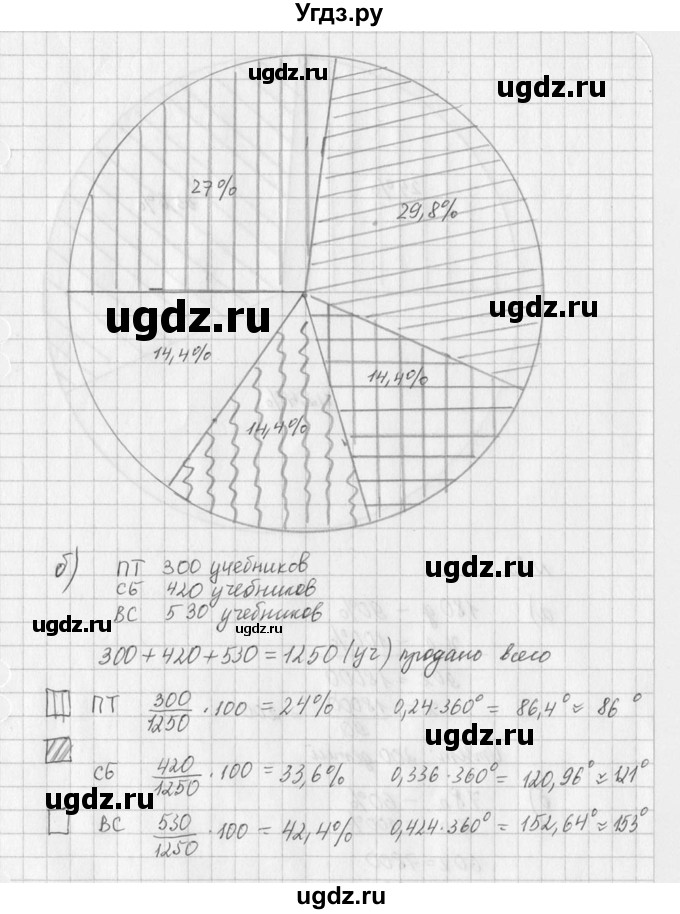 Угдз.ру
ugdz.ru
ugdz.ru
27%
29,8%
ugdz.ru
ugdz.ru
14,4%
14,4%
14,4%
б) ПТ 300 учебников
ugdz.ru
СБ 420 учебников
ВС 530 учебников
ugdz.ru
ugdz.ru
300 + 420 + 530 = 1250 (уч) продано всего
ПТ 300/1250 · 100 = 24% 0,24·360° = 86,4° ≈ 86°
ugdz.ru
СБ 420/1250 · 100 = 33,6% 0,336·360° = 120,96° ≈ 121°
ugdz.ru
ВС 530/1250 · 100 = 42,4% 0,424·360° = 152,64° ≈ 153°
ugdz.ru
ugdz.ru